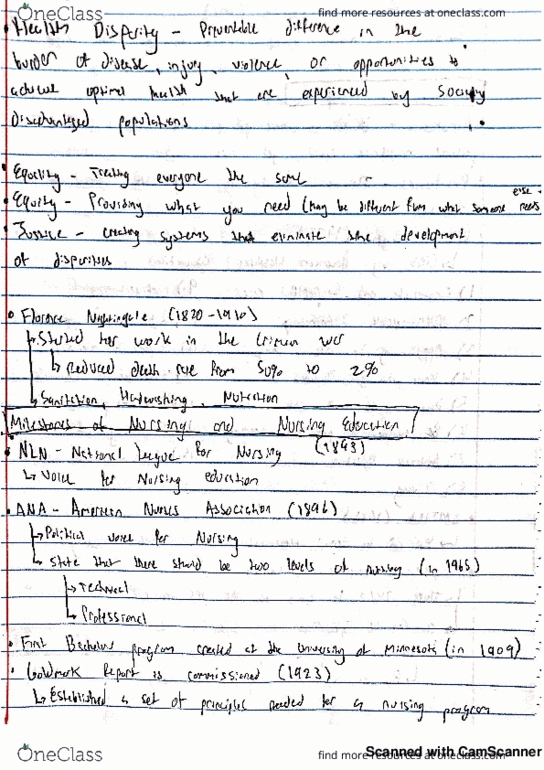 OneClass find more resources at oneclass.com
• Health Disparity - Preventable difference in the
burden of disease, injury, violence, or opportunities to
achieve optimal health that are experienced by Socially
Disadvantaged populations
• Equality - Treating everyone the same
• Equity - Providing what you need (may be different from what someone else needs
• Justice - creating systems that eliminate the development
of disparities
• Florence Nightingale (1820-1910)
↳ Started her work in the Crimean war
↳ Reduced death rate from 50% to 2%
↳ Sanitation, Handwashing, Nutrition
Milestones of Nursing and Nursing Education
• NLN - National League for Nursing (1893)
↳ Voice for Nursing education
• ANA - American Nurses Association (1896)
↳ Political voice for Nursing
↳ State that there should be two levels of nursing (in 1965)
↳ Technical
↳ Professional
• First Bachelors program created at the University of Minnesota (in 1909)
• Goldmark Report is commissioned (1923)
↳ Established a set of principles needed for a nursing program
OneClass find more resources at oneclass.com
Scanned with CamScanner